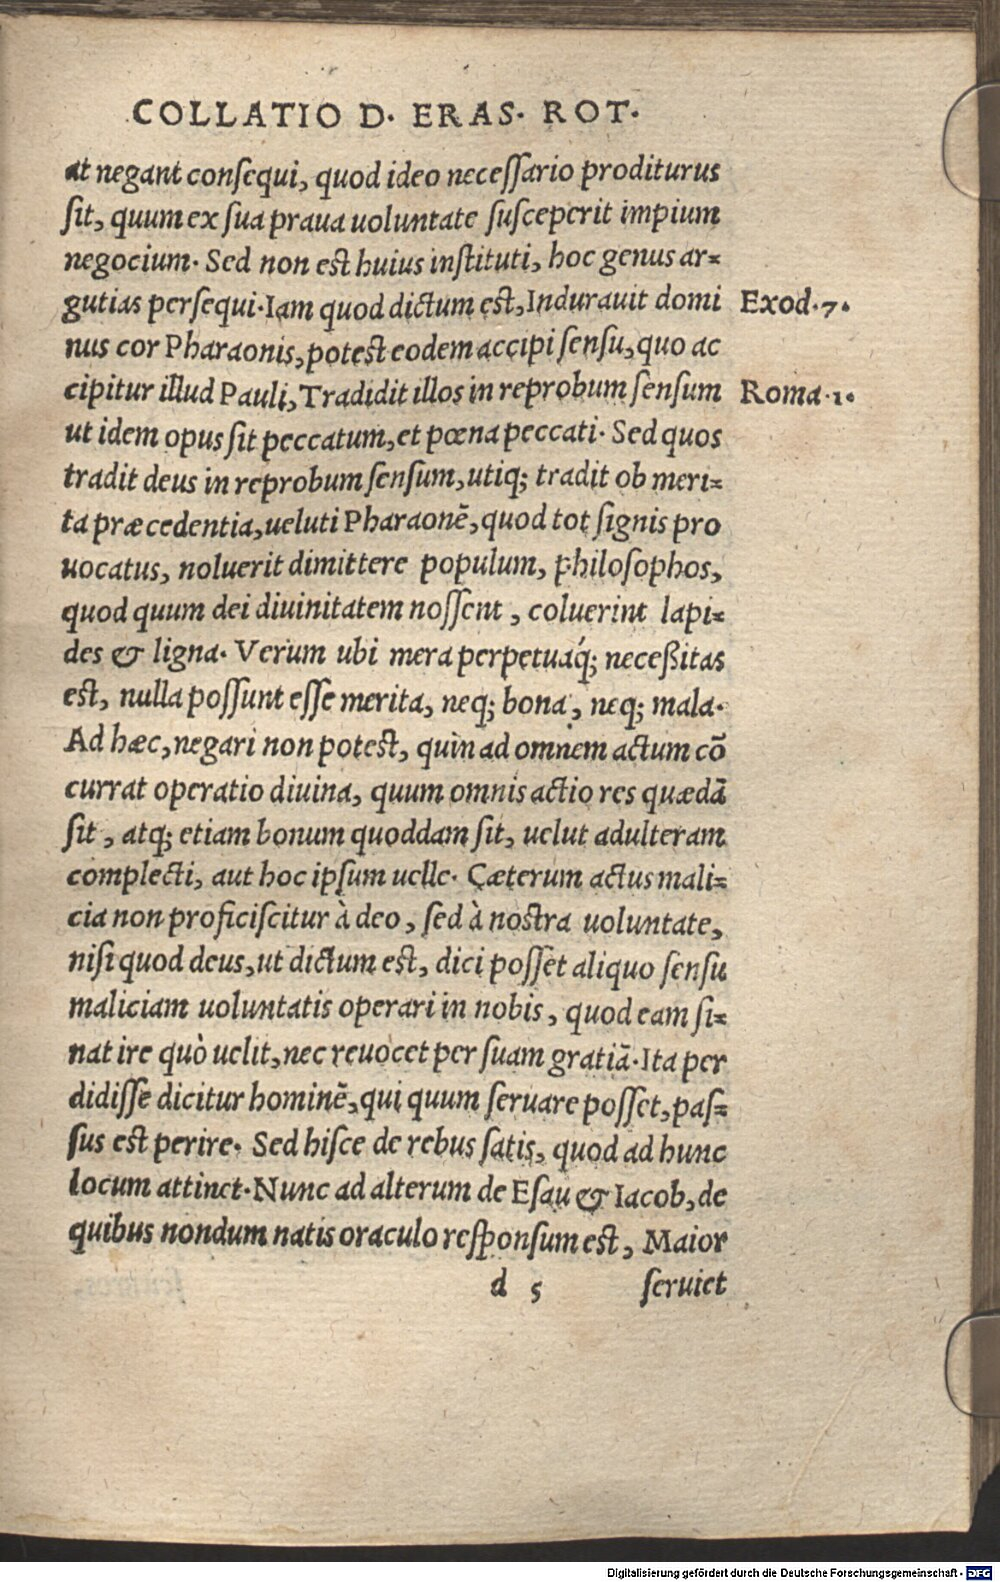 COLLATIO D. ERAS. ROT.
at negant conſequi, quod ideo neceſſario proditurus
ſit, quum ex ſua praua uoluntate ſuſceperit impium
negocium. Sed non est huius inſtituti, hoc genus ar=
gutias perſequi. Iam quod dictum est, Indurauit domi Exod. 7.
nus cor Pharaonis, potest eodem accipi ſenſu, quo ac
cipitur illud Pauli, Tradidit illos in reprobum ſenſum Roma. 1.
ut idem opus ſit peccatum, et pœna peccati. Sed quos
tradit deus in reprobum ſenſum, utiq; tradit ob meri=
ta præcedentia, ueluti Pharaonē, quod tot ſignis pro
uocatus, noluerit dimittere populum, philoſophos,
quod quum dei diuinitatem noſſent, coluerint lapi=
des & ligna. Verum ubi mera perpetuáq; neceßitas
est, nulla poſſunt eſſe merita, neq; bona, neq; mala.
Ad hæc, negari non potest, quin ad omnem actum cō
currat operatio diuina, quum omnis actio res quædā
ſit, atq; etiam bonum quoddam ſit, uelut adulteram
complecti, aut hoc ipſum uelle. Cæterum actus mali=
cia non proficiſcitur à deo, ſed à nostra uoluntate,
niſi quod deus, ut dictum est, dici poſſet aliquo ſenſu
maliciam uoluntatis operari in nobis, quod eam ſi=
nat ire quò uelit, nec reuocet per ſuam gratiā. Ita per
didiſſe dicitur hominē, qui quum ſeruare poſſet, paſ=
ſus est perire. Sed hiſce de rebus ſatis, quod ad hunc
locum attinet. Nunc ad alterum de Eſau & Iacob, de
quibus nondum natis oraculo reſponſum est, Maior
d 5 ſeruiet
Digitalisierung gefördert durch die Deutsche Forschungsgemeinschaft - DFG